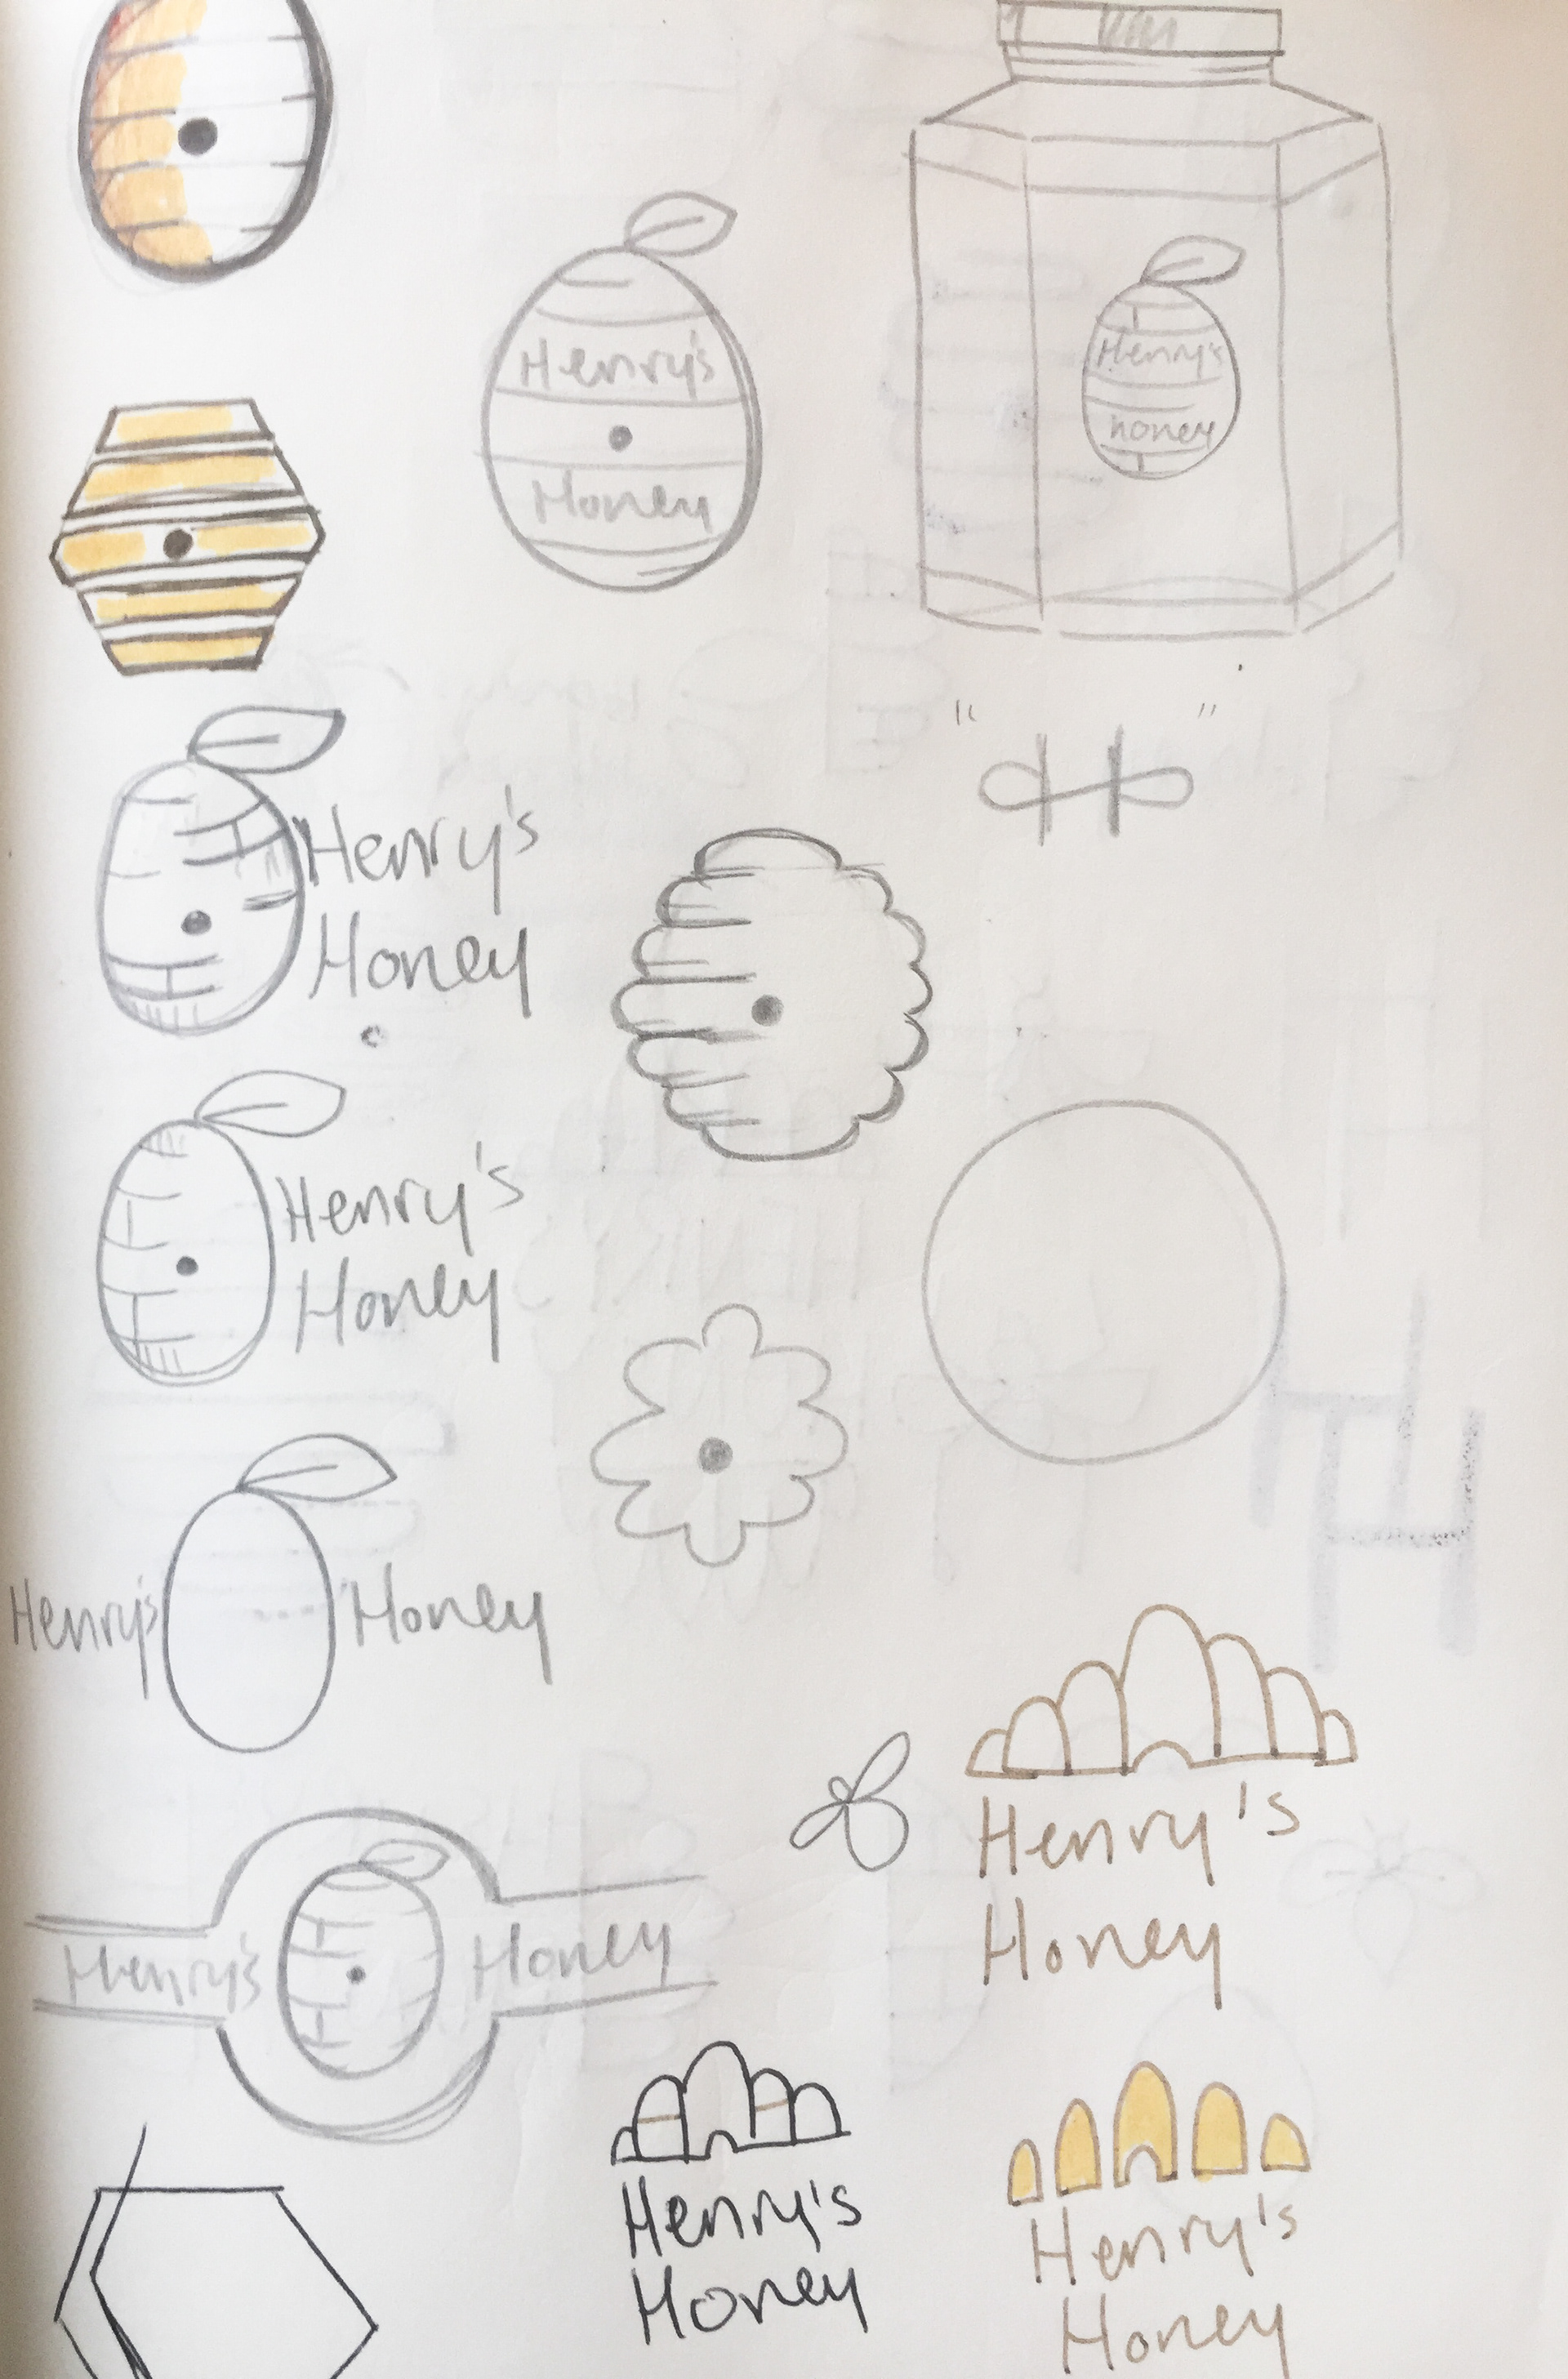 Henry's
Honey
Henry's
honey
"H"
Henry's
Honey
Henry's
Honey
Henry's Honey
Henry's Honey
Henry's
Honey
Henry's
Honey
Henry's
Honey